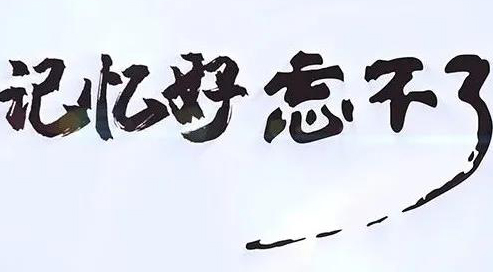 记忆好忘不了